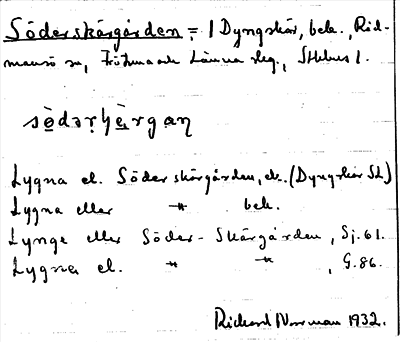 Söderskärgården = 1 Dyngskär, bek., Rid-
mansö sn, Frötuna och Länna slg., Sthlms l.
sö̀dərʂæ̀rgaṇ
Lygna el. Söderskärgården, ek. (Dyngskär Sk)
Lygna eller -"- bek.
Lynge eller Söder-Skärgården, Sj. 61.
Lygna el. -"- -"-, G. 86.
Rickard Norrman 1932.